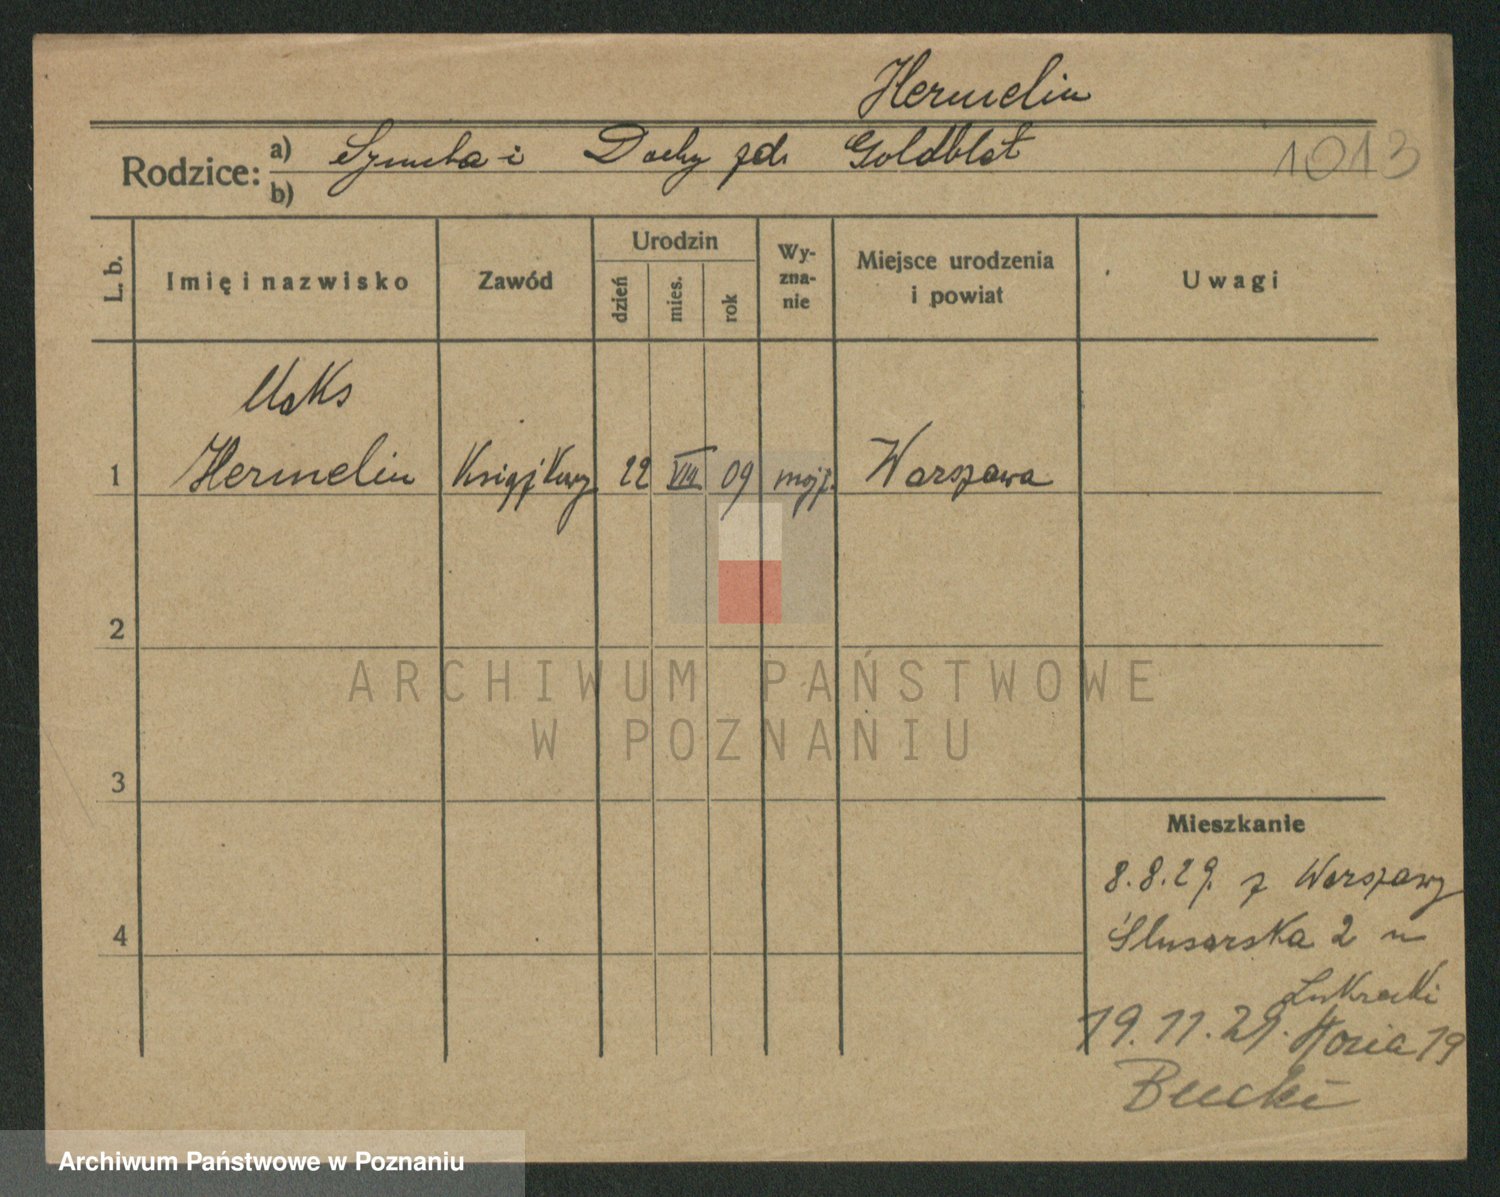 Hermelin
Rodzice: a) Szymcha i Dochy zd. Goldblat
b)
1013
L. b.
Imię i nazwisko
Zawód
Urodzin
dzień
mies.
rok
Wy-
zna-
nie
Miejsce urodzenia
i powiat
Uwagi
Maks
1 Hermelin Książkowy 22 VIII 09 mojż. Warszawa
2
3
4
Mieszkanie
8.8.29. z Warszawy
Ślusarska 2 u
19.11.29. 19
ARCHIWUM PAŃSTWOWE
W POZNANIU
Archiwum Państwowe w Poznaniu